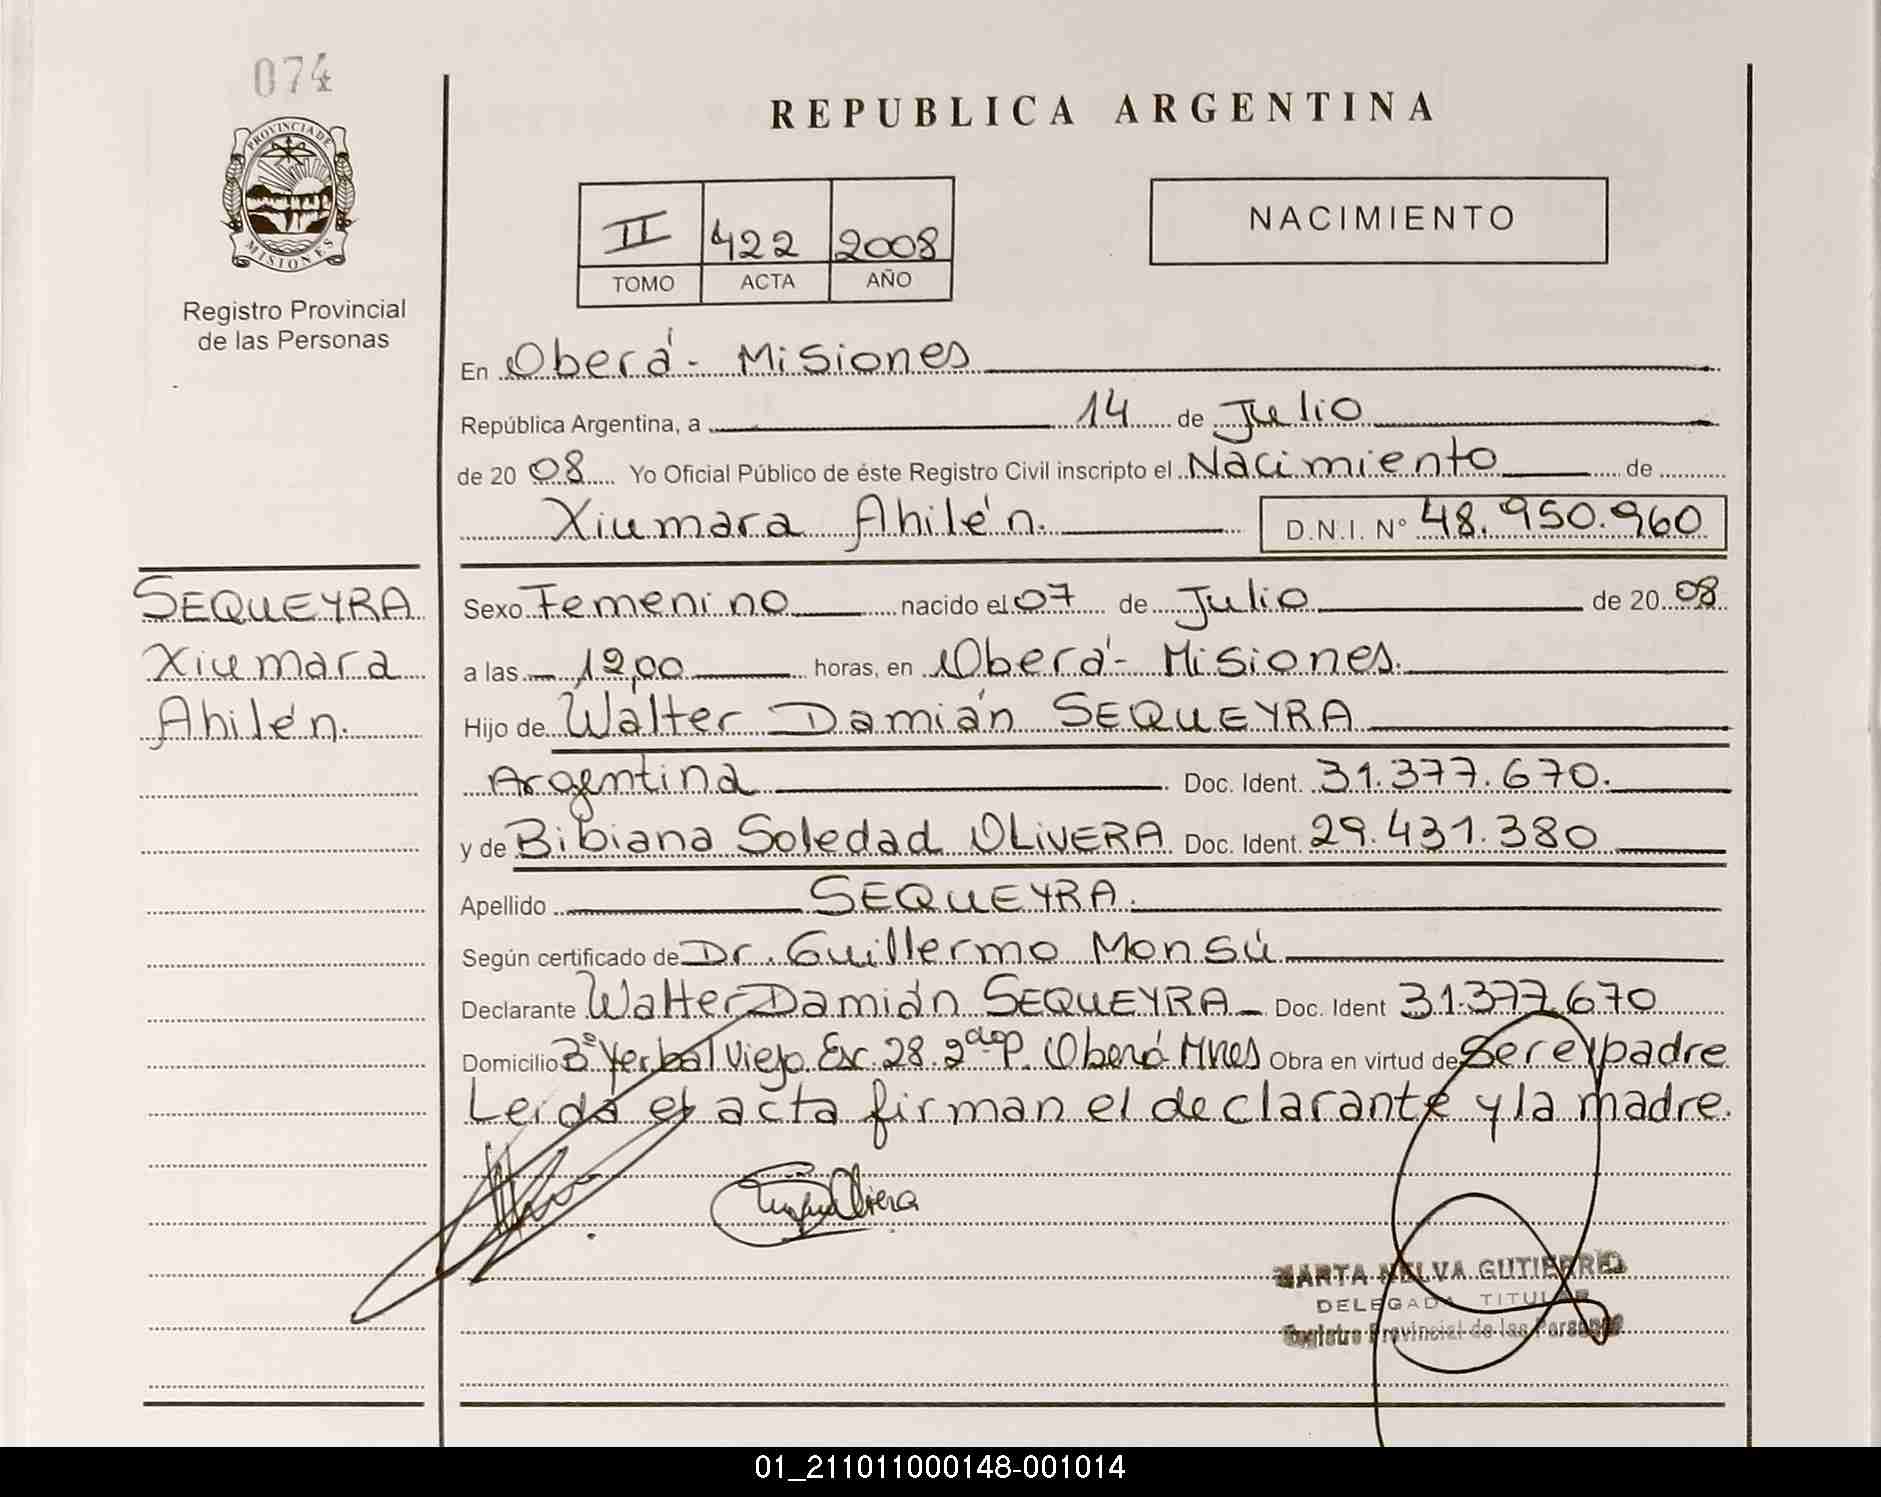 074
PROVINCIA DE
MISIONES
Registro Provincial
de las Personas
REPUBLICA ARGENTINA
II 422 2008
TOMO ACTA AÑO
NACIMIENTO
En Oberá - Misiones
República Argentina, a 14 de Julio
de 20 08 Yo Oficial Público de éste Registro Civil inscripto el Nacimiento de
Xiumara Ahilén. D.N.I. N° 48.950.960
SEQUEYRA
Xiumara
Ahilén.
Sexo Femenino nacido el 07 de Julio de 20 08
a las 12,00 horas, en Oberá - Misiones.
Hijo de Walter Damián SEQUEYRA
Argentina Doc. Ident. 31.377.670.
y de Bibiana Soledad OLIVERA Doc. Ident. 29.431.380
Apellido SEQUEYRA.
Según certificado de Dr. Guillermo Monsú
Declarante Walter Damián SEQUEYRA Doc. Ident 31.377.670
Domicilio B° Yerbal Viejo Esc. 28. Oberá Mnes Obra en virtud de ser el padre
Leida el acta firman el declarante y la madre.
Olivera
MARTA NELVA GUTIERREZ
DELEGADA TITULAR
Registro Provincial de las Personas
01_211011000148-001014